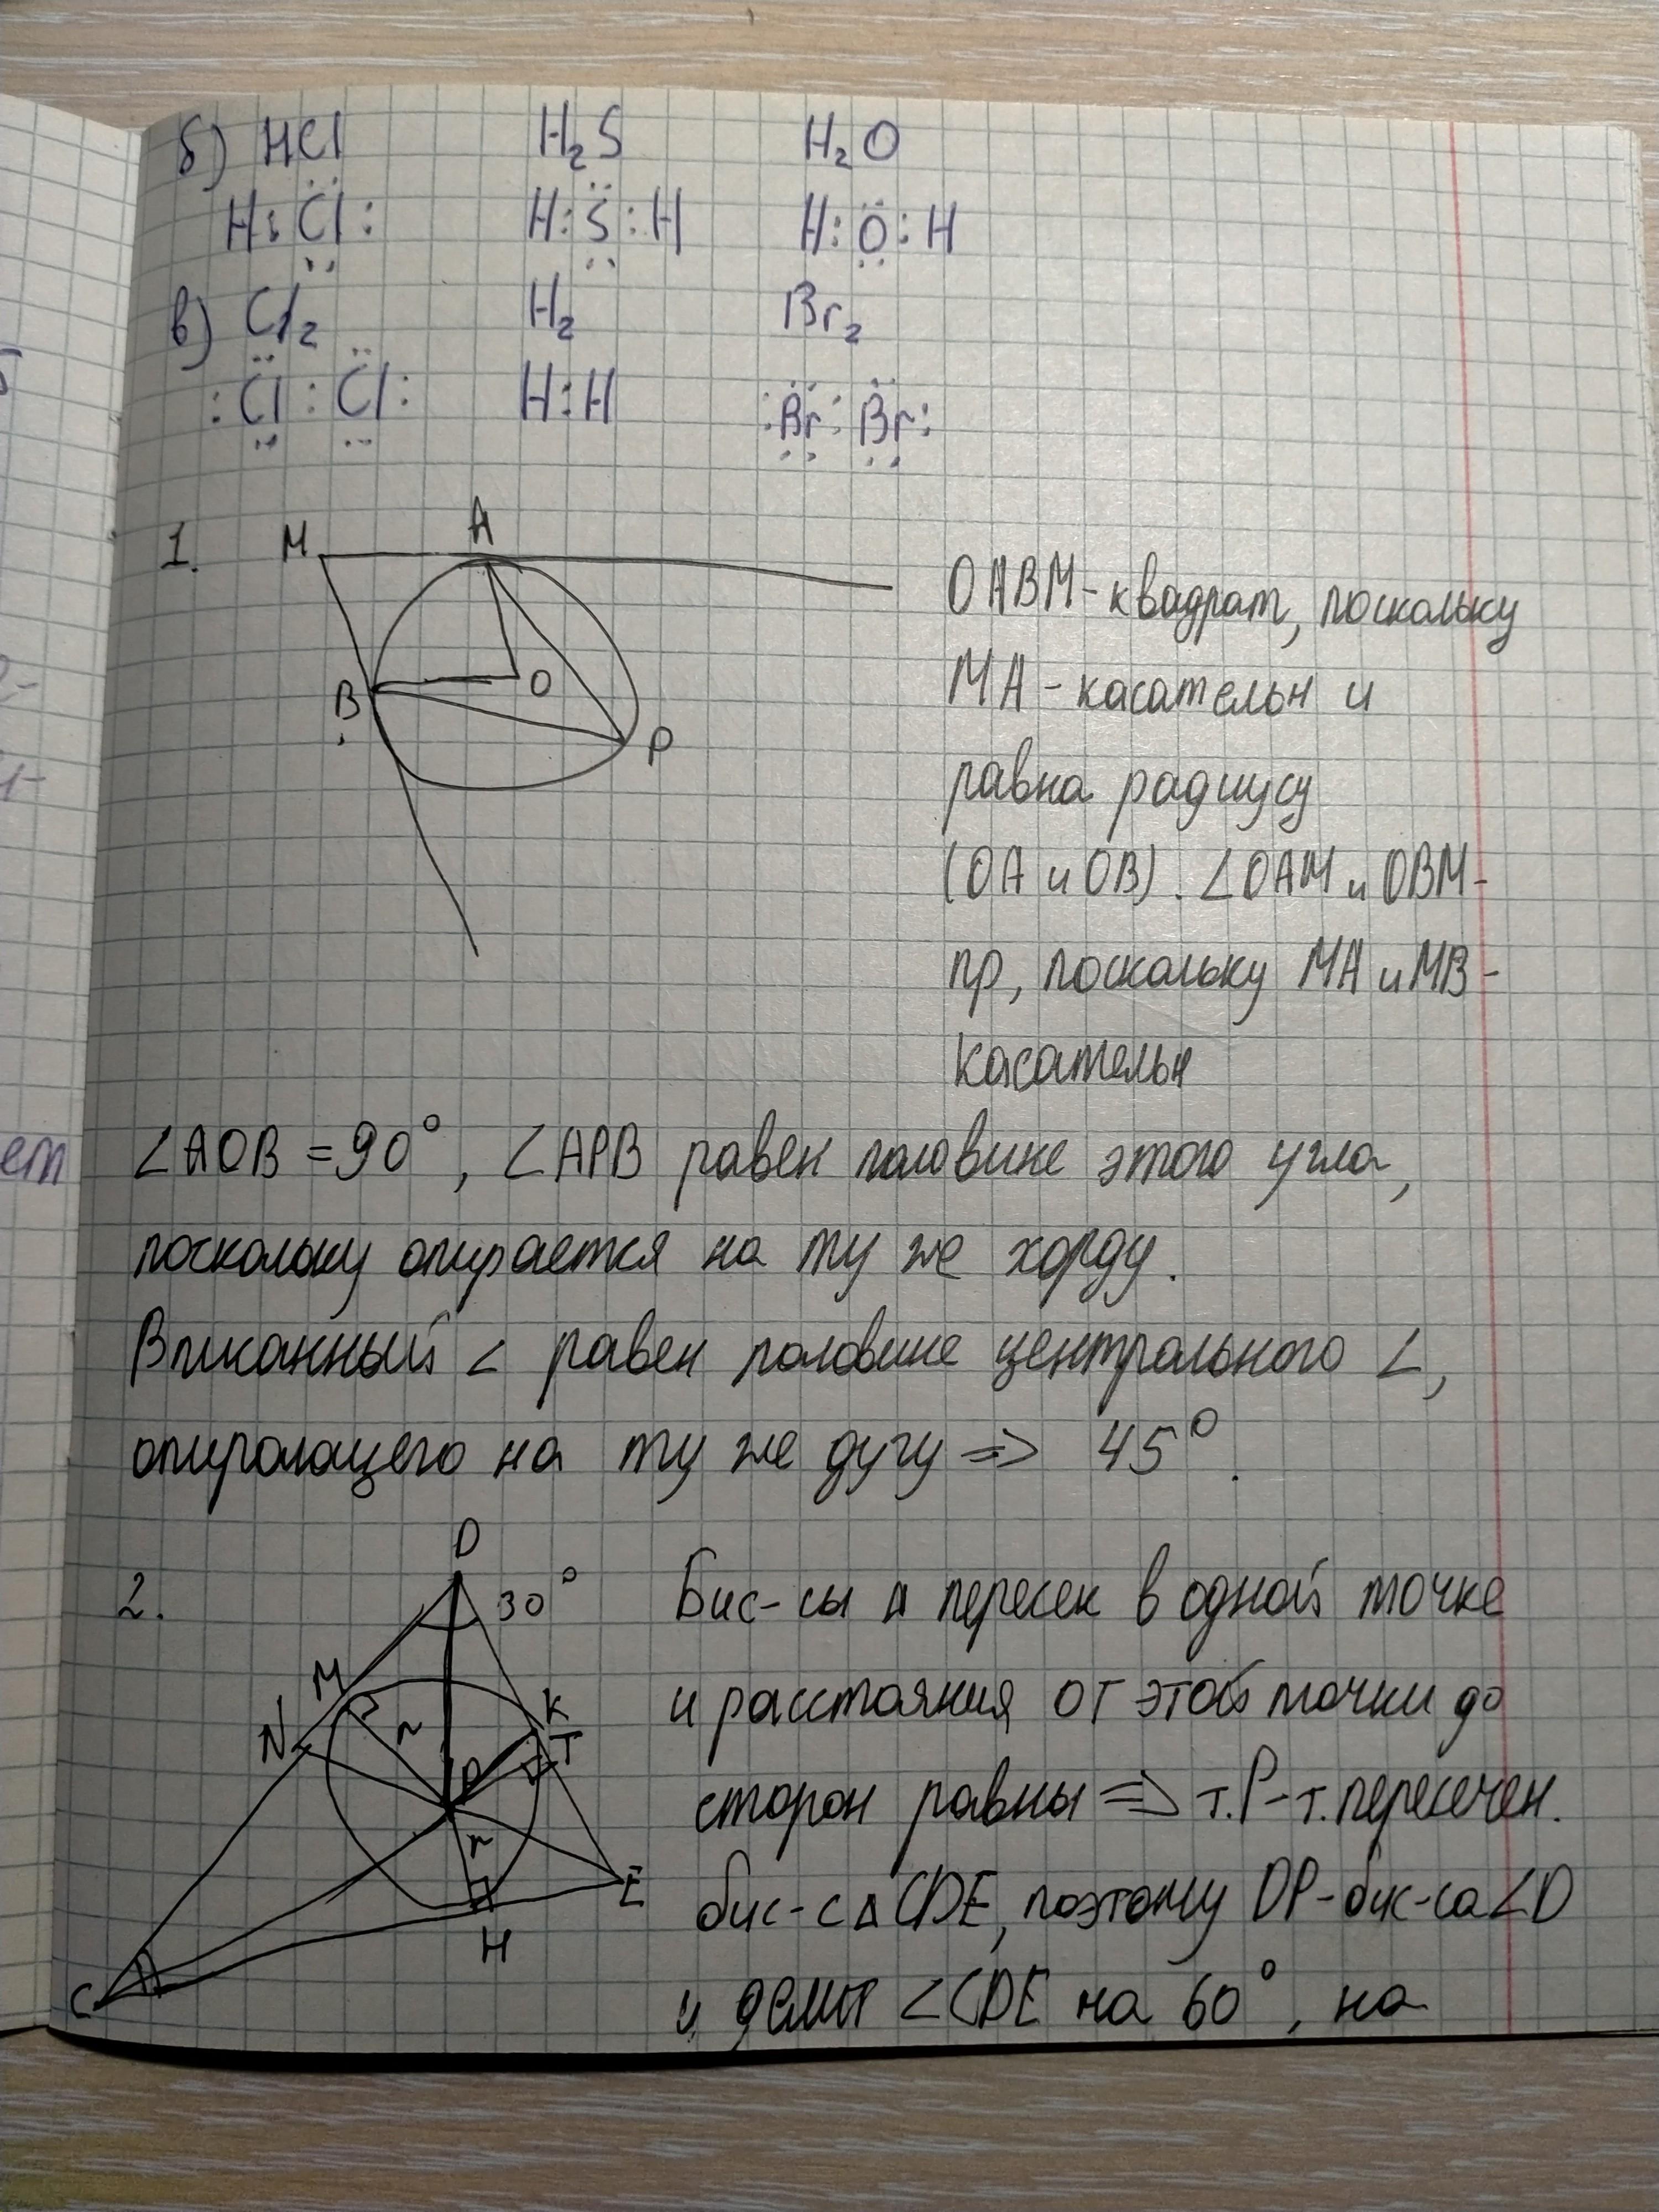 б) HCl H₂S H₂O
H:Cl: H:S:H H:O:H
в) Cl₂ H₂ Br₂
:Cl:Cl: H:H :Br:Br:
1. М А
В О Р
ОАВМ-квадрат, поскольку
МА-касательн и
равна радиусу
(ОА и ОВ). ∠ОАМ и ОВМ-
пр, поскольку МА и МВ-
касательн
∠АОВ = 90°, ∠АРВ равен половине этого угла,
поскольку опирается на ту же хорду.
Вписанный ∠ равен половине центрального ∠,
опирающего на ту же дугу => 45°.
2. D 30°
M K
N T
r P
r E
H
C
Бис-сы ∆ пересек в одной точке
и расстояния от этой точки до
сторон равны => т.Р-т.пересечен.
бис-с∆CDE, поэтому DP-бис-са∠D
и делит ∠CDE на 60°, на